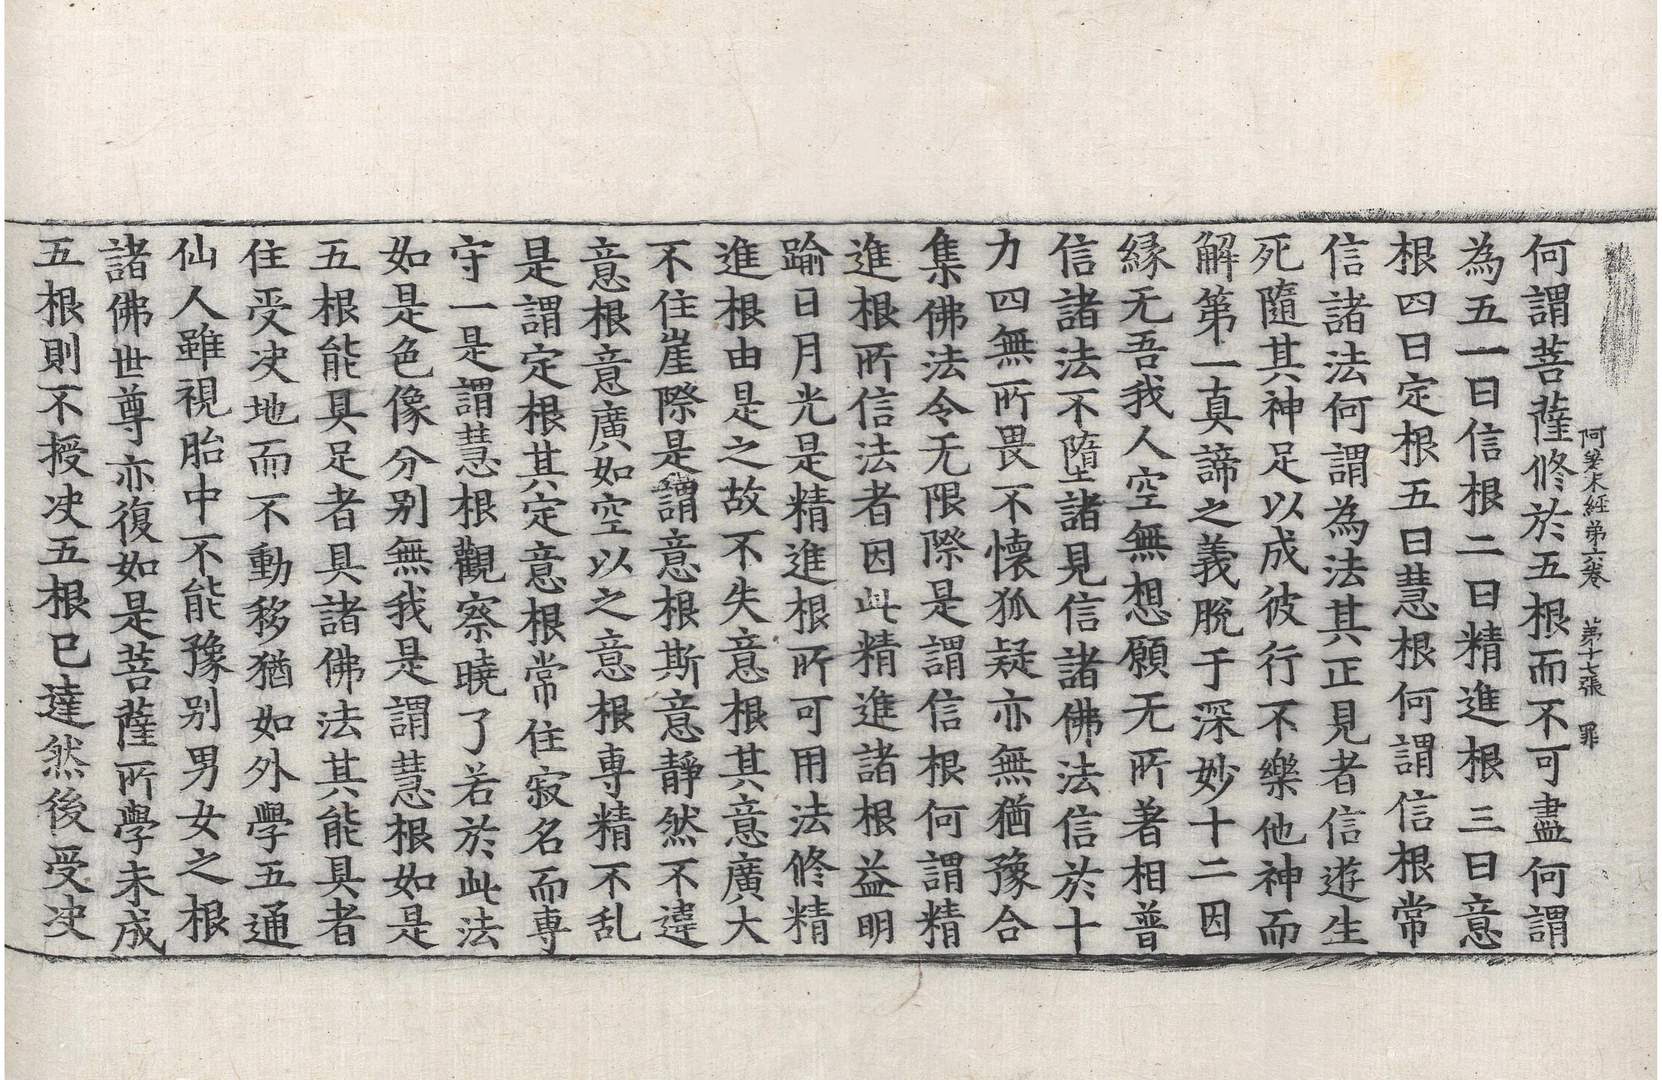 阿差末經第六卷　第十七張　罪
何謂菩薩修於五根而不可盡何謂
為五一曰信根二曰精進根三曰意
根四曰定根五曰慧根何謂信根常
信諸法何謂為法其正見者信遊生
死隨其神足以成彼行不樂他神而
解第一真諦之義脫于深妙十二因
緣无吾我人空無想願无所著相普
信諸法不墮諸見信諸佛法信於十
力四無所畏不懷狐疑亦無猶豫合
集佛法令无限際是謂信根何謂精
進根所信法者因此精進諸根益明
踰日月光是精進根所可用法修精
進根由是之故不失意根其意廣大
不住崖際是謂意根斯意靜然不違
意根意廣如空以之意根專精不乱
是謂定根其定意根常住寂名而專
守一是謂慧根觀察曉了若於此法
如是色像分别無我是謂慧根如是
五根能具足者具諸佛法其能具者
住受决地而不動移猶如外學五通
仙人雖視胎中不能豫别男女之根
諸佛世尊亦復如是菩薩所學未成
五根則不授决五根已達然後受决